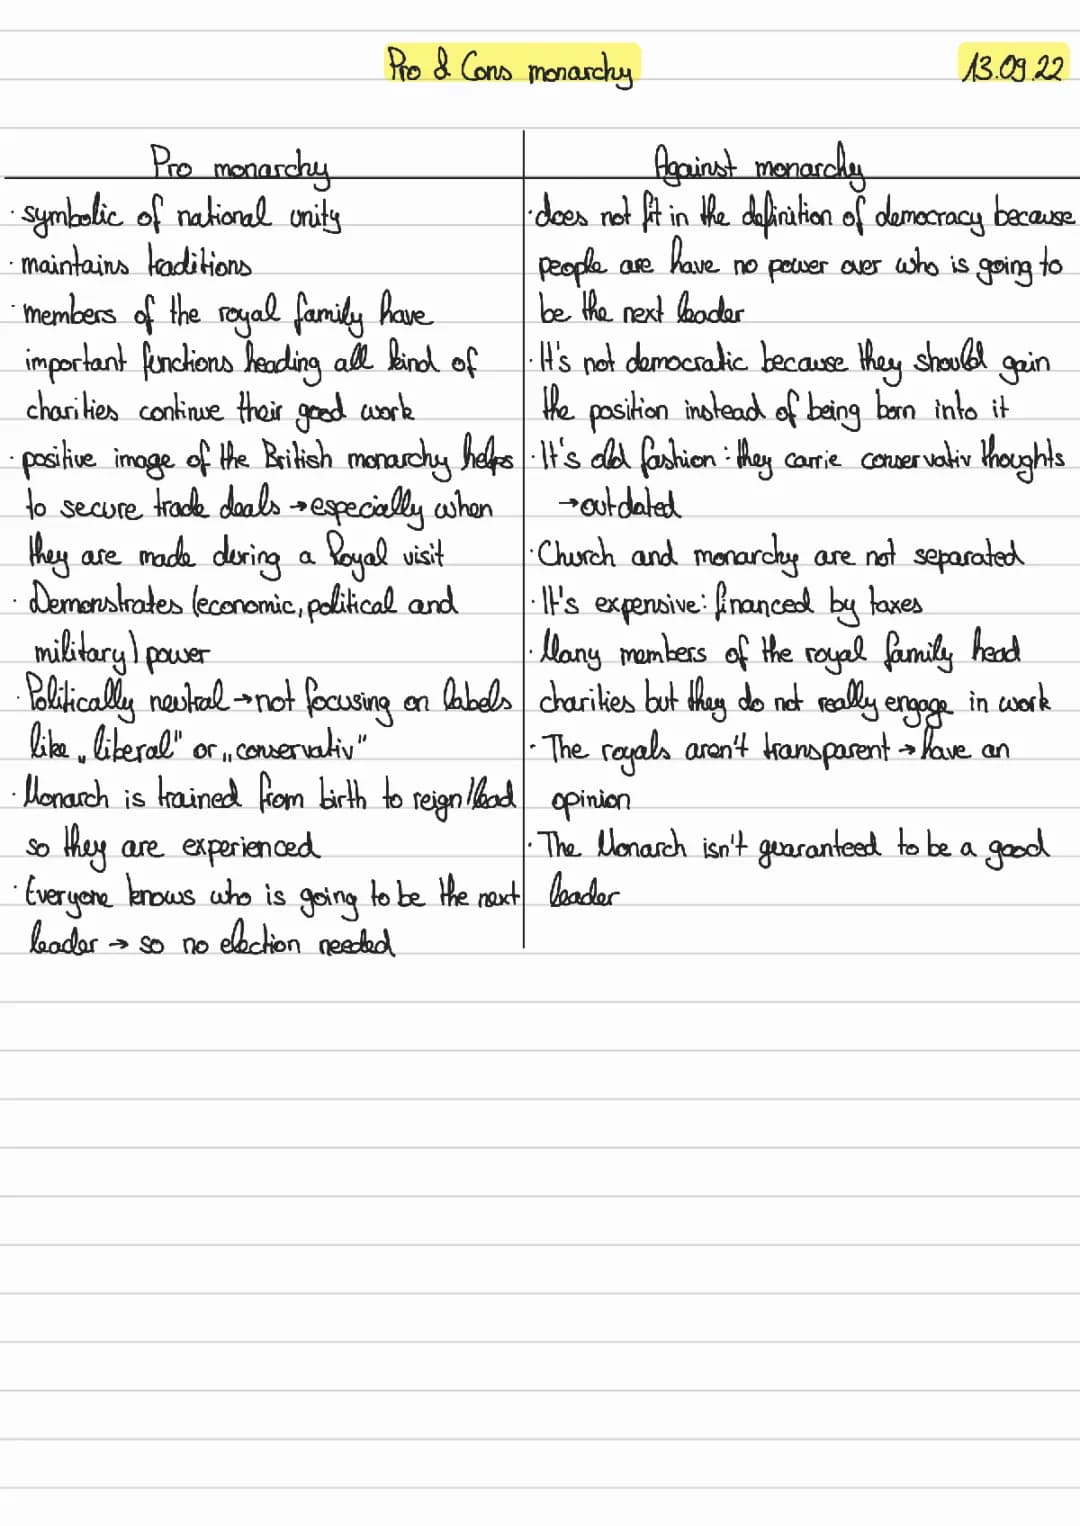 Pro & Cons monarchy
13.09.22
Pro monarchy
· symbolic of national unity
· maintains traditions
· members of the royal family have
important functions heading all kind of
charities continue their good work
· positive image of the British monarchy helps
to secure trade deals → especially when
they are made dering a Royal visit
· Demonstrates (economic, political and
military) power
· Politically neutral → not focusing on labels
like „liberal" or „conservativ"
· Monarch is trained from birth to reign/lead
so they are experienced
· Everyone knows who is going to be the next
leader → so no election needed
Against monarchy
· does not fit in the definition of democracy because
people are have no power over who is going to
be the next leader
· It's not democratic because they should gain
the position instead of being born into it
· It's old fashion: they carrie conservativ thoughts
→ outdated
· Church and monarchy are not separated
· It's expensive: financed by taxes
· Many members of the royal family head
charities but they do not really engage in work
· The royals aren't transparent → have an
opinion
· The Monarch isn't guaranteed to be a good
leader